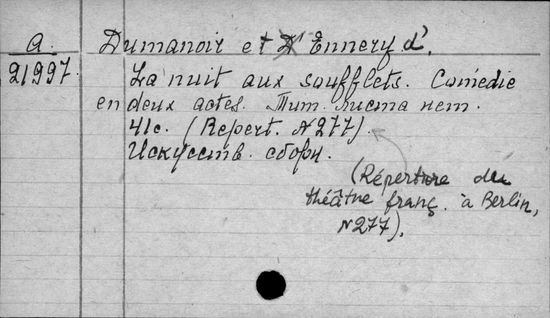 A
21997.
Dumanoir et D' Ennery d'.
La nuit aux soufflets. Comédie
en deux actes. Тит. листа нет.
41с. (Repert. N277).
Искусств. сборн.
(Répertoire du
théâtre franç. à Berlin,
N277).